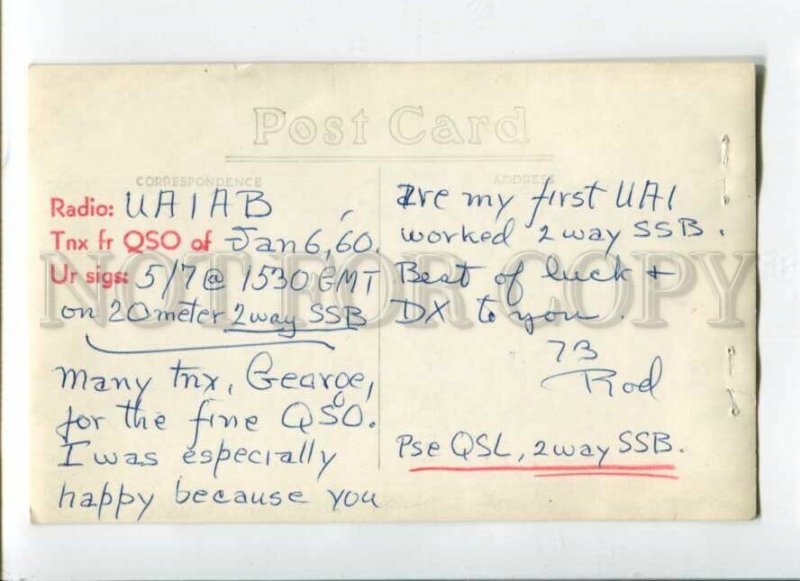 Post Card
CORRESPONDENCE
Radio: UA1AB
Tnx fr QSO of Jan 6, 60.
Ur sigs: 5/7 @ 1530 GMT
on 20 meter 2way SSB
Many tnx, George,
for the fine QSO.
I was especially
happy because you
ADDRESS
are my first UA1
worked 2way SSB.
Best of luck +
DX to you.
73
Rod
Pse QSL, 2way SSB.
NOT FOR COPY